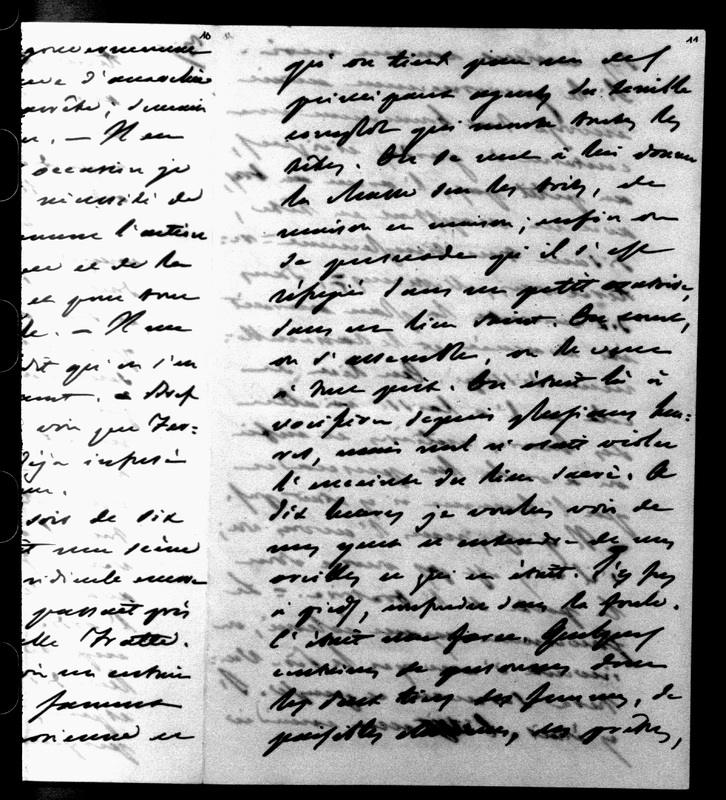 10
gouvernement
arrête, demain
. — Il en
occasion je
nécessité de
l'action
et de la
et pour tout
. — Il me
dit qu'on s'en
voir que
déjà
soir de dix
une scène
ridicule
passait près
famme
en
11
qu'on tient pour un des
principaux agents du terrible
complot qui monte toutes les
têtes. On se met à lui donner
la chasse sur les toits, de
maison en maison ; enfin on
se persuade qu'il s'est
réfugié dans un petit oratoire,
dans un lieu saint. On court,
on s'assemble, on le veut
à tout prix. On était là à
vociférer depuis plusieurs heu=
res, mais nul n'osait violer
l'enceinte du lieu sacré. A
dix heures je voulus voir de
mes yeux et entendre de mes
oreilles ce qui en était. J'y fus
à pied, confondu dans la foule.
C'était une farce. Quelques
centaines de personnes dont
les deux tiers des femmes, de
paisibles des prêtres,